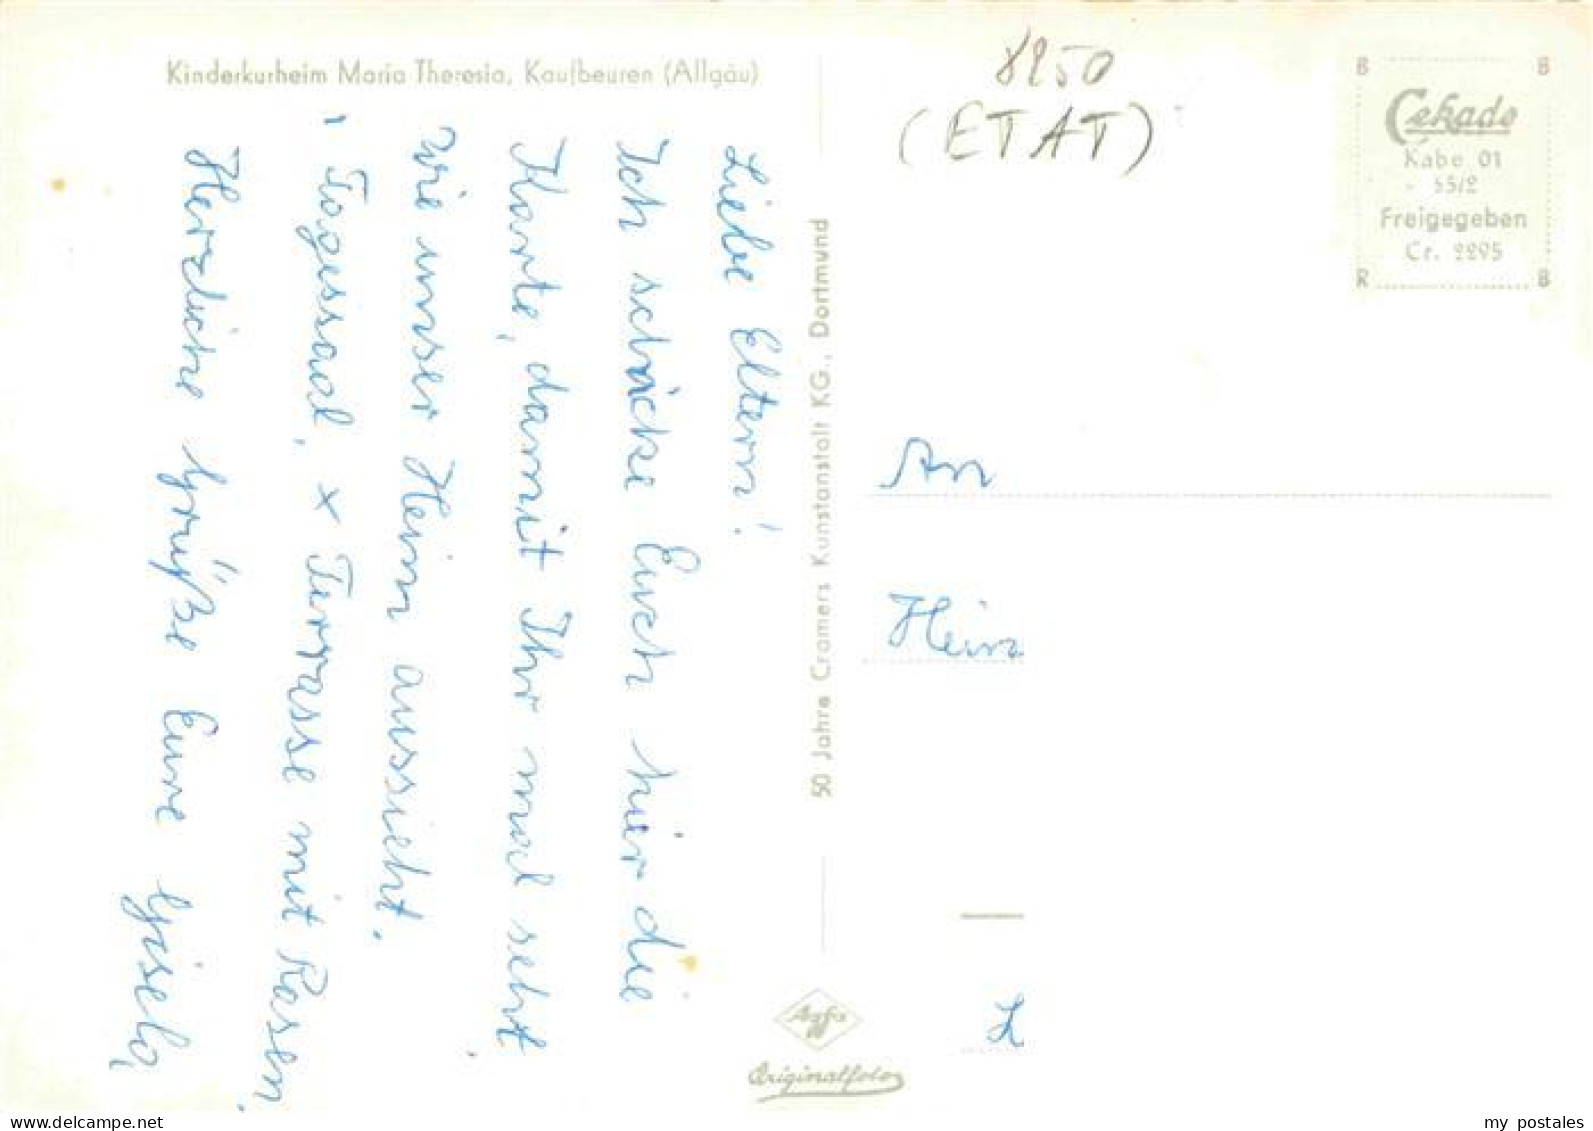 Kinderkurheim Maria Theresia, Kaufbeuren (Allgäu)
Liebe Eltern!
Ich schicke Euch hier die
Karte, damit Ihr mal seht
wie unser Heim aussieht.
Tagessaal, x Terrasse mit Rasen.
Herzliche Grüße Eure Gisela
50 Jahre Cramers Kunstanstalt KG., Dortmund
Agfa
Originalfoto
8250
(ETAT)
B B
Cekade
Kabe 01
- 55/2
Freigegeben
Cr. 2295
R B
An
L
my postales
www.delcampe.net